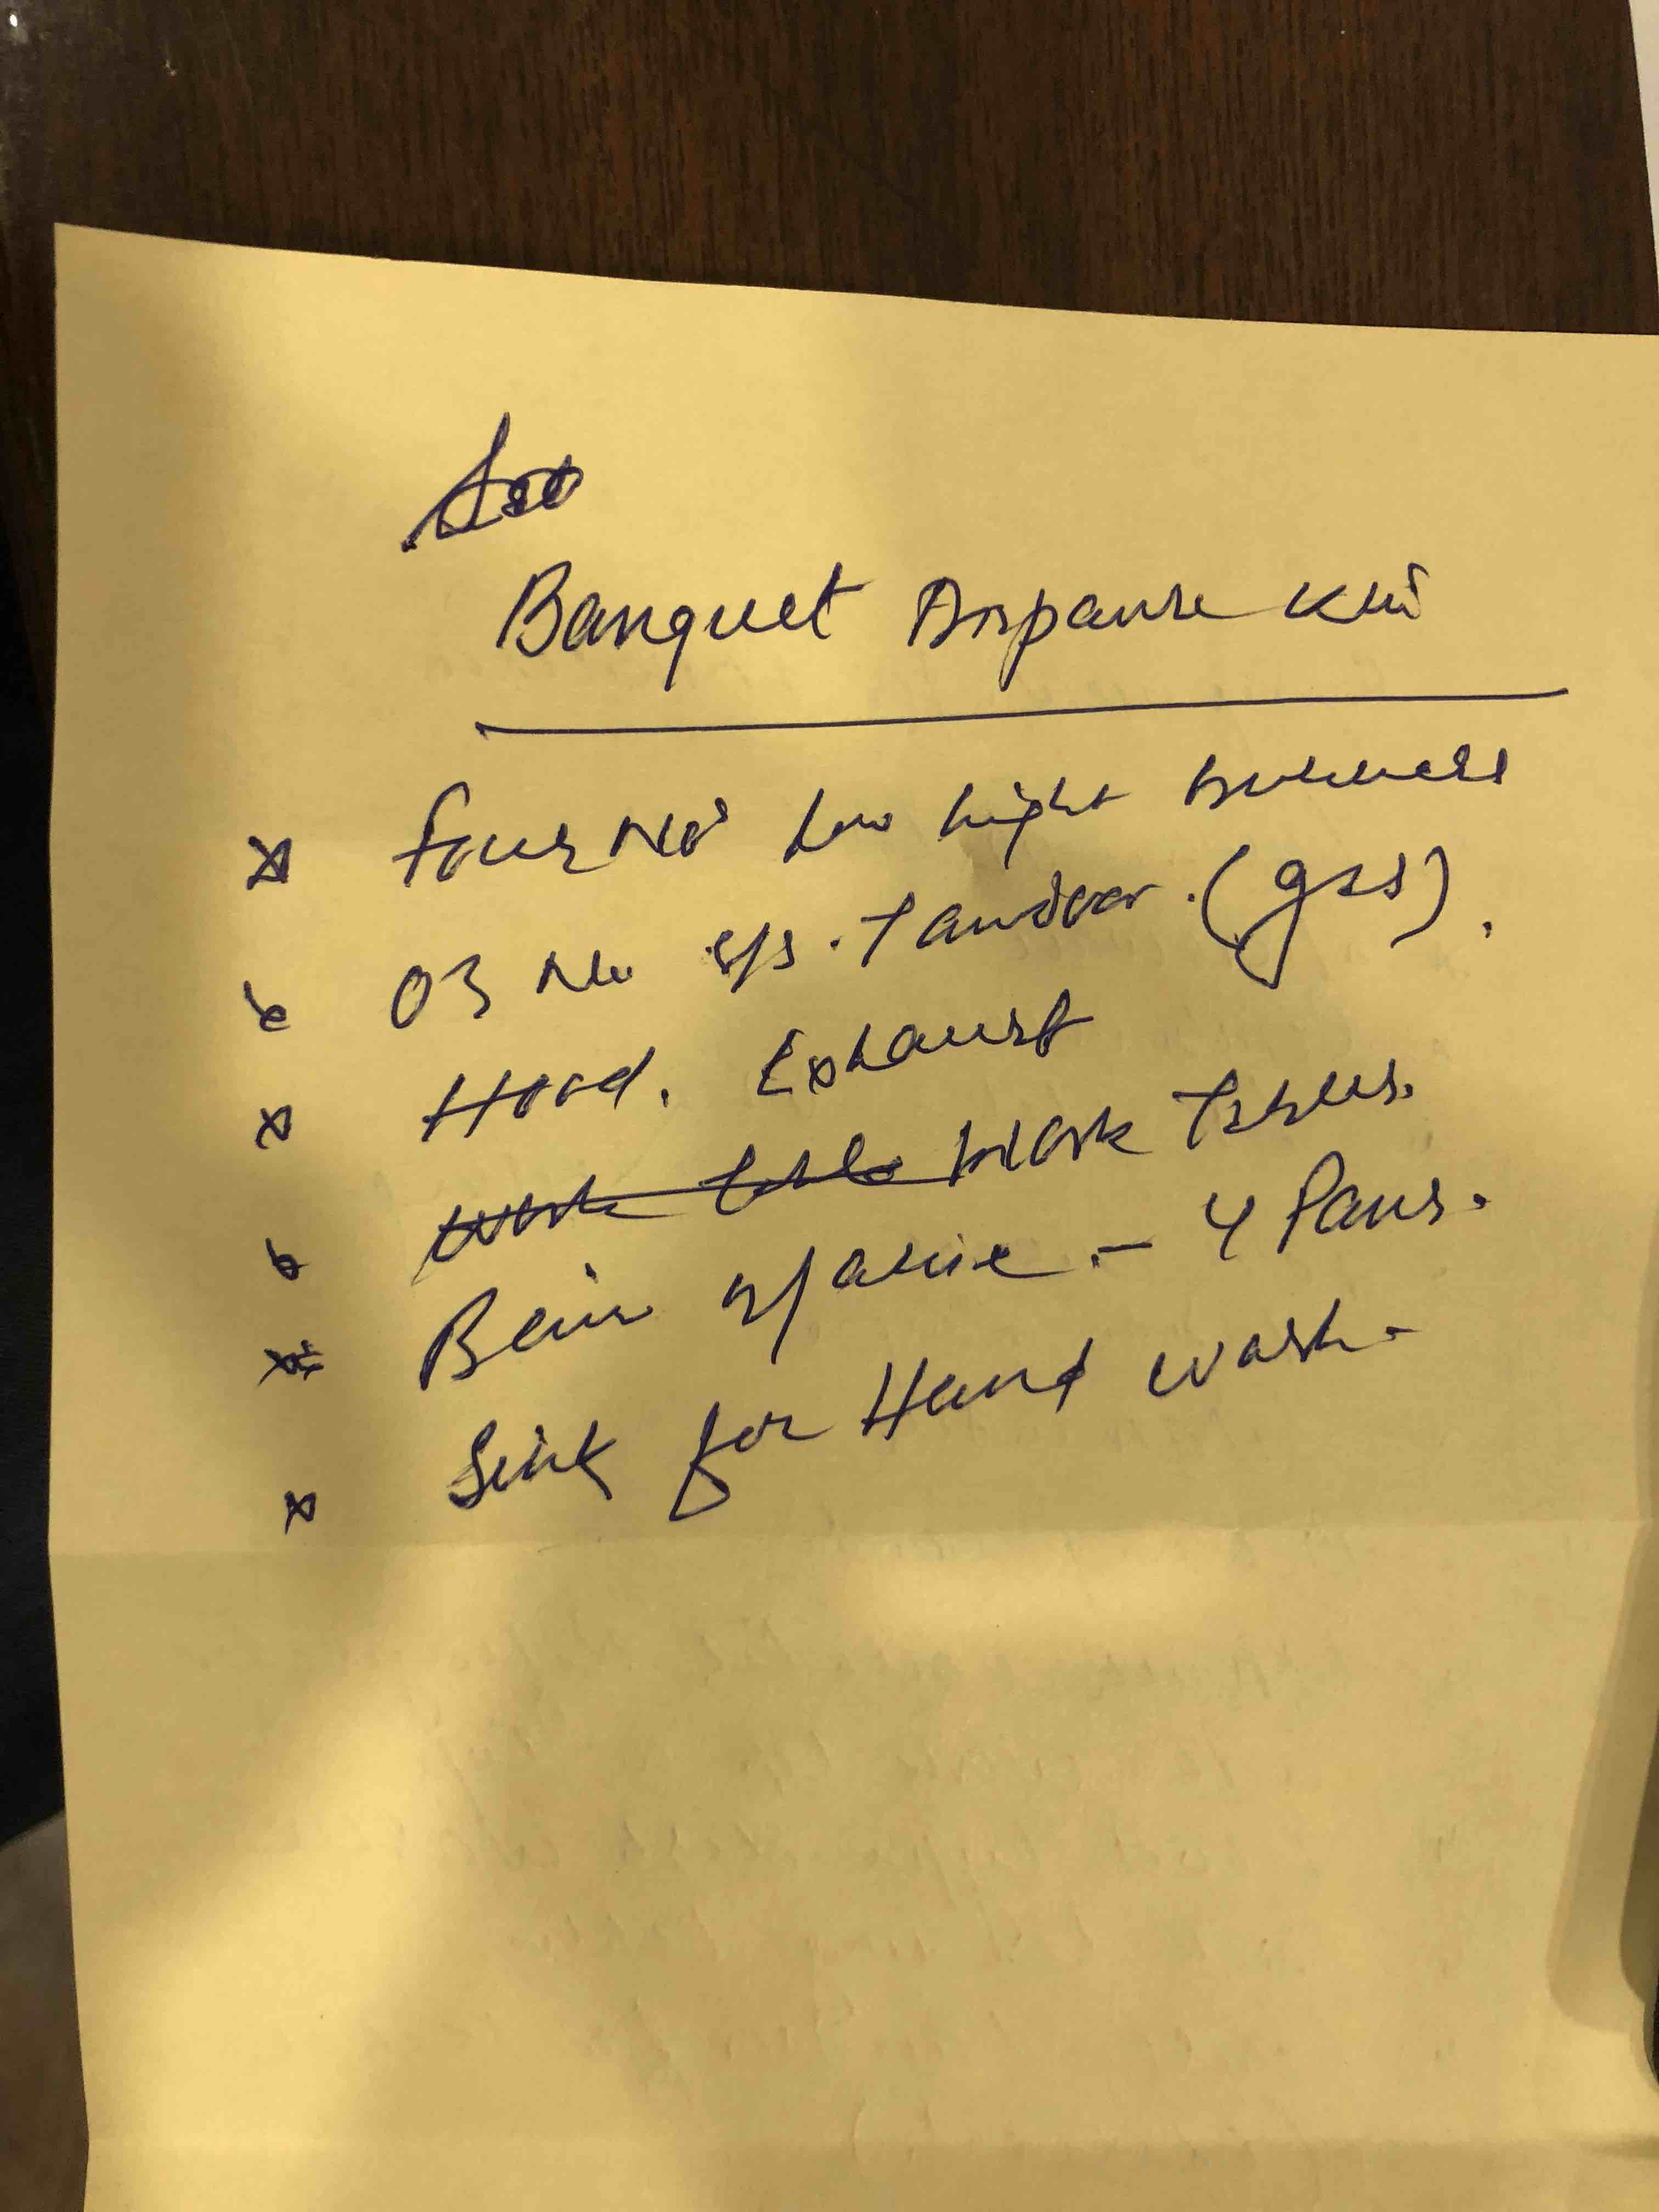 Banquet Dispanse Kit
Four Nos low hight burners
03 No s/s. Tandoor. (gas).
Hood. Exhaust
work table Work Tables.
Bain Marie. - 4 Pans.
Sink for Hand wash.